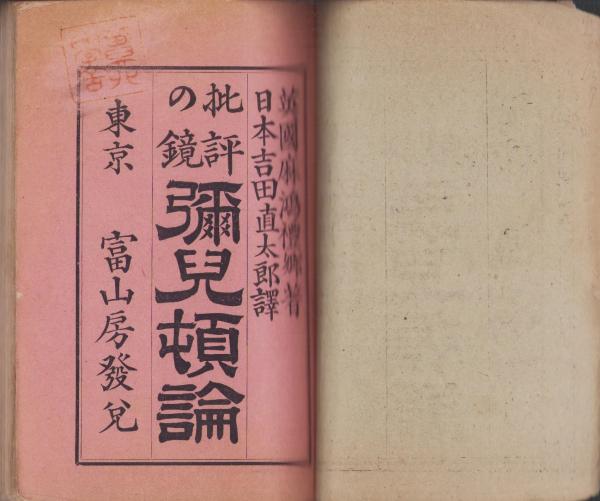 英國麻鴻禮卿著
日本吉田直太郎譯
批評の鏡
彌兒頓論
東京 富山房發兌